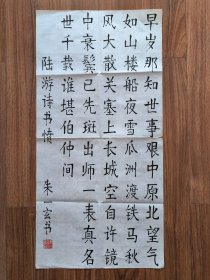 早岁那知世事艰中原北望气
如山楼船夜雪瓜洲渡铁马秋
风大散关塞上长城空自许镜
中衰鬓已先斑出师一表真名
世千载谁堪伯仲间
陆游诗书愤 朱玄书